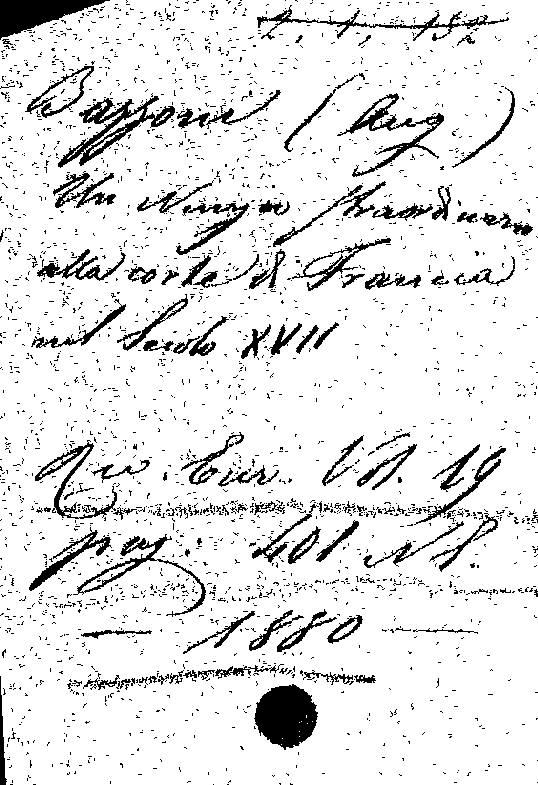 2. 1. 152
Bazzoni (Aug)
Un Nunzio straordinario
alla corte di Francia
nel Secolo XVII
Riv. Eur. Vol. 19
pag. 401 N S.
— 1880 —